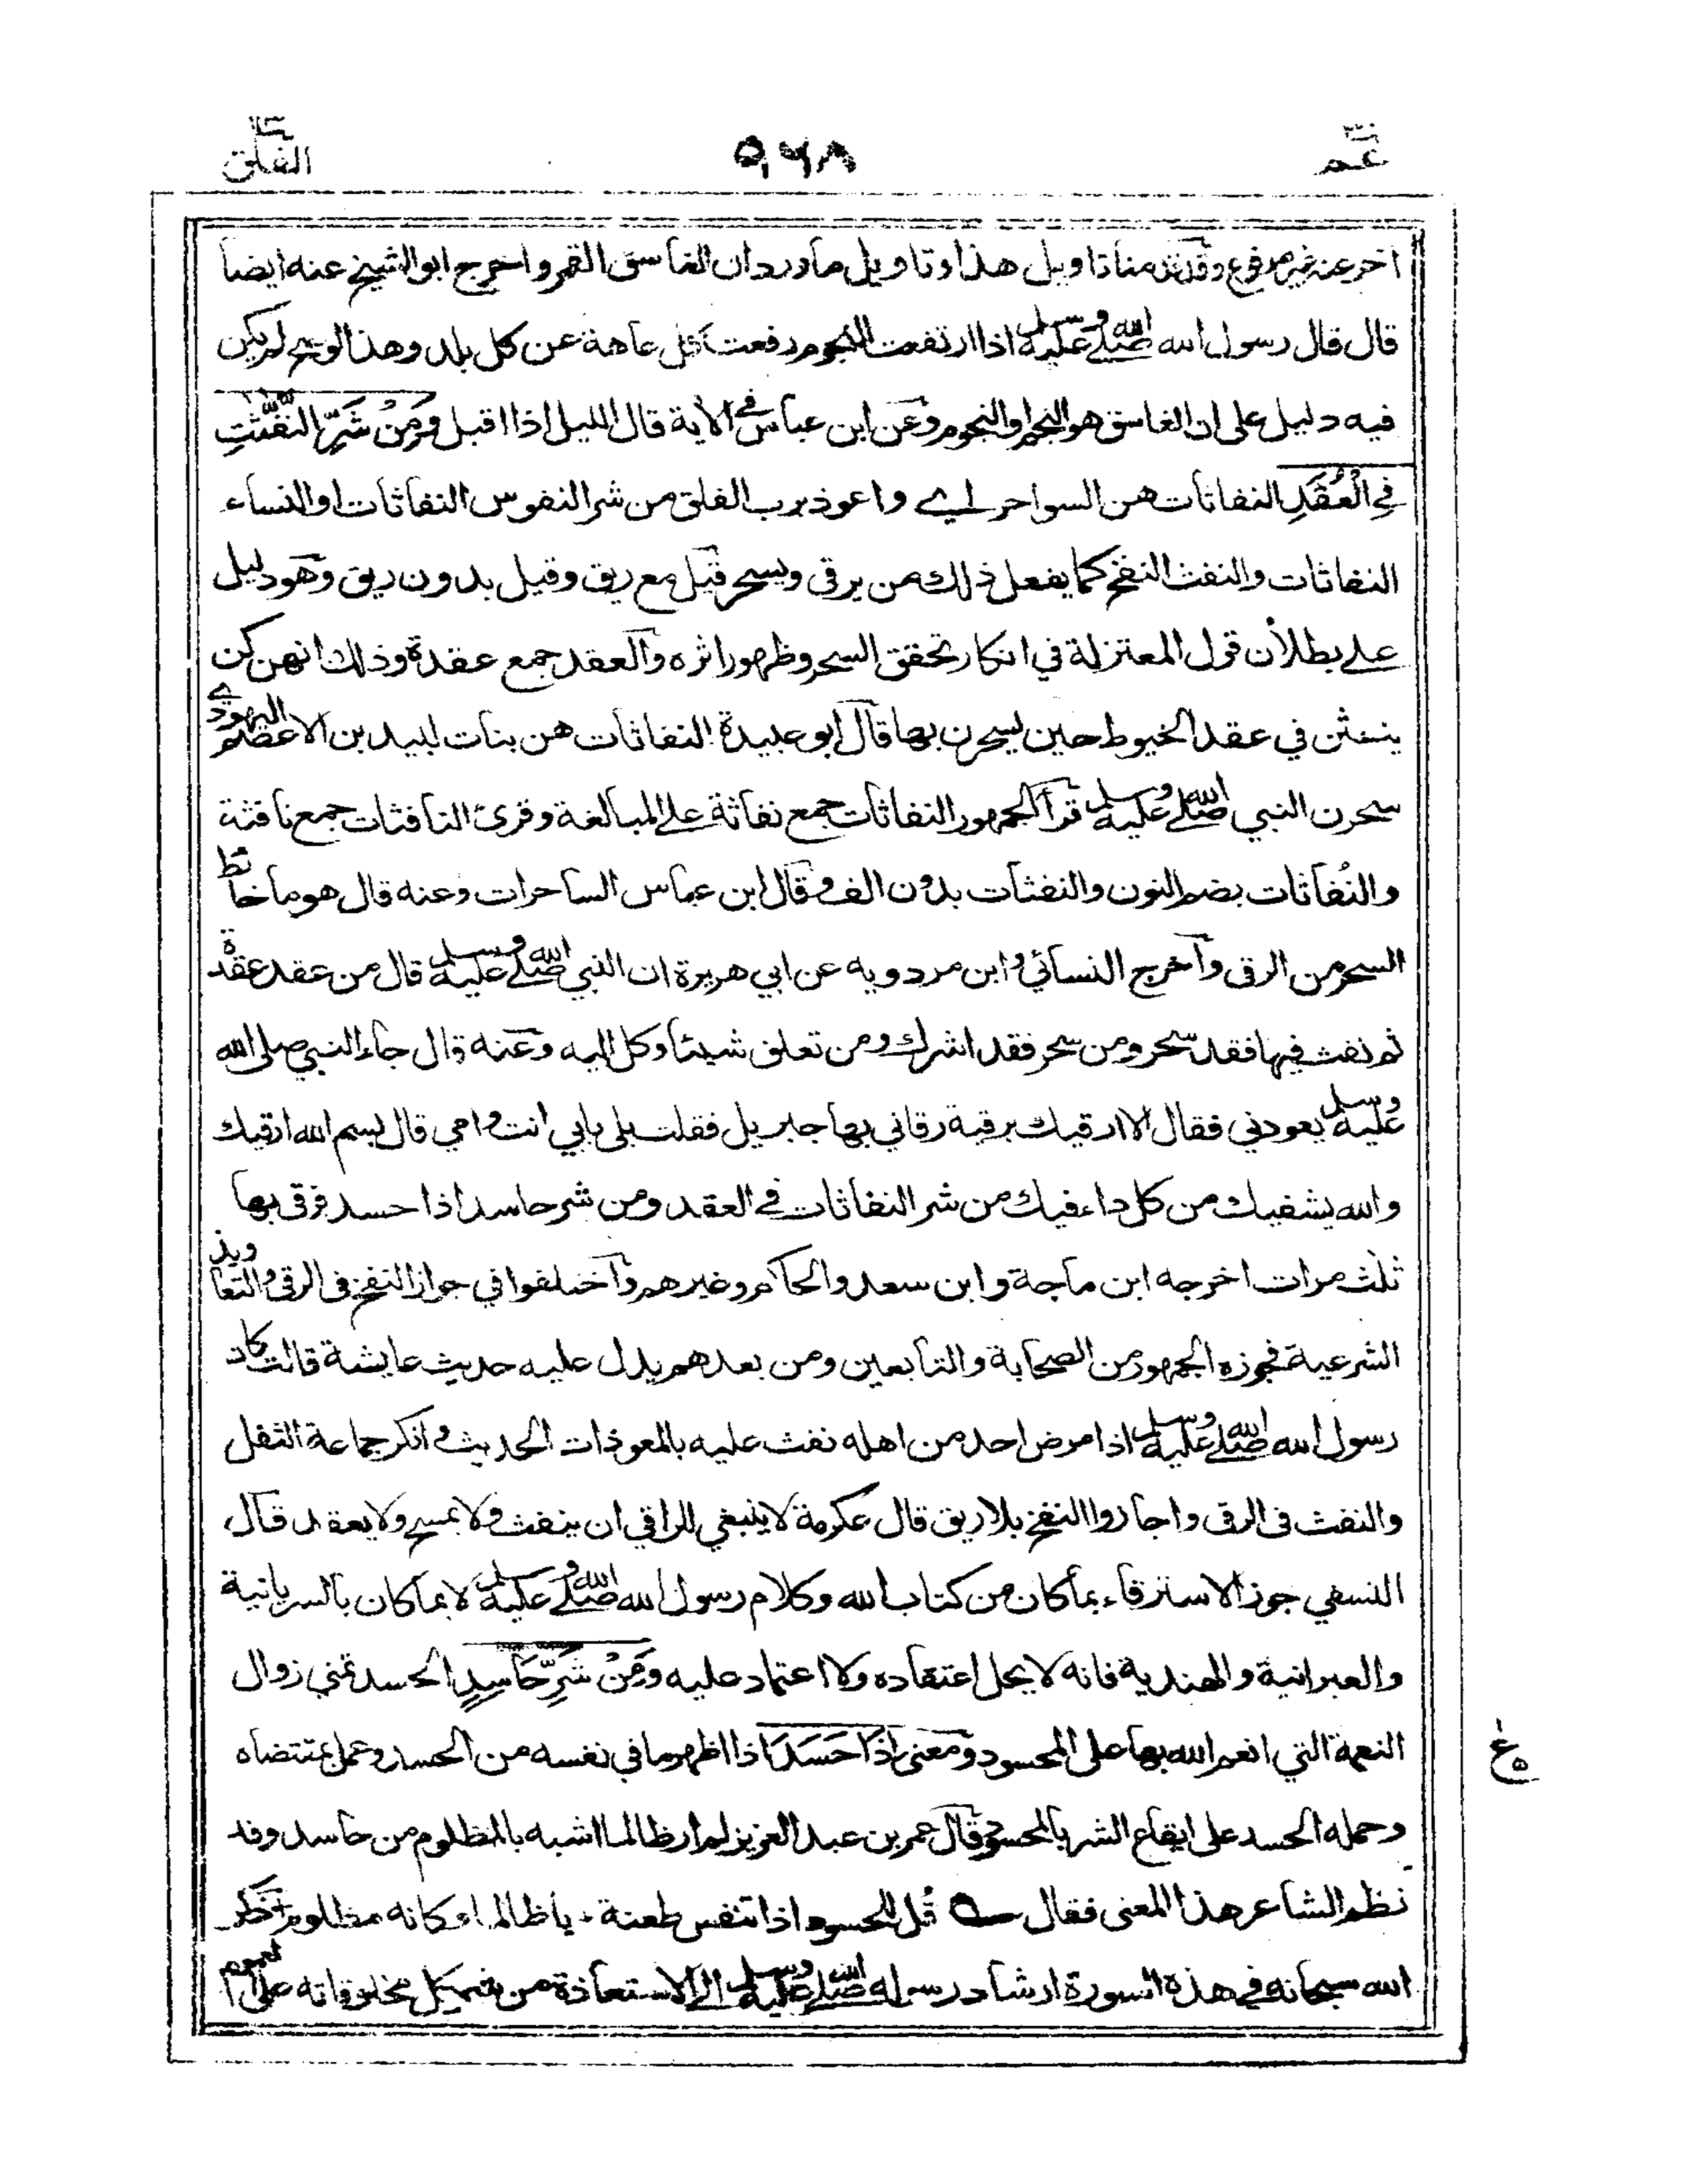 عم ٥٦٨ الفلق
اخر عنه غير مرفوع وقد قدمنا تاويل هذا وتاويل ما ورد ان الغاسق القمر واخرج ابو الشيخ عنه ايضا
قال قال رسول الله صلى الله عليه وسلم اذا ارتفعت النجوم رفعت كل عاهة عن كل بلد وهذا لو صح لم يكن
فيه دليل على ان الغاسق هو النجم او النجوم وعن ابن عباس في الأية قال الليل اذا اقبل وَمِنْ شَرِّ النَّفّٰثٰتِ
فِي الْعُقَدِ النفاثات هن السواحر اي واعوذ برب الفلق من شر النفوس النفاثات او النساء
النفاثات والنفث النفخ كما يفعل ذلك من يرقى ويسحر قيل مع ريق وقيل بدون ريق وهو دليل
على بطلان قول المعتزلة في انكار تحقق السحر وظهور اثره والعقد جمع عقدة وذلك انهن كن
ينفثن في عقد الخيوط حين يسحرن بها قال ابو عبيدة النفاثات هن بنات لبيد بن الاعصم اليهودي
سحرن النبي صلى الله عليه وسلم قرأ الجمهور النفاثات جمع نفاثة على المبالغة وقرئ النافثات جمع نافثة
والنُفاثات بضم النون والنفثات بدون الف وقال ابن عباس الساحرات وعنه قال هو ما خالط
السحر من الرقى وأخرج النسائي وابن مردويه عن ابي هريرة ان النبي صلى الله عليه وسلم قال من عقد عقدة
ثم نفث فيها فقد سحر ومن سحر فقد اشرك ومن تعلق شيئا وكل اليه وعنه قال جاء النبي صلى الله
عليه وسلم يعودني فقال الا ارقيك برقية رقاني بها جبريل فقلت بلى بابي انت وامي قال بسم الله ارقيك
والله يشفيك من كل داء فيك من شر النفاثات في العقد ومن شر حاسد اذا حسد فرقى بها
ثلث مرات اخرجه ابن ماجة وابن سعد والحاكم وغيرهم وأختلفوا في جواز النفخ فى الرقى والتعاويذ
الشرعية فجوزه الجمهور من الصحابة والتابعين ومن بعدهم يدل عليه حديث عايشة قالت كان
رسول الله صلى الله عليه وسلم اذا مرض احد من اهله نفث عليه بالمعوذات الحديث وانكر جماعة التفل
والنفث فى الرقى واجازوا النفخ بلا ريق قال عكرمة لا ينبغي للراقي ان ينفث ولا يمسح ولا يعقد قال
النسفي جوز الاسترقاء بما كان من كتاب الله وكلام رسول الله صلى الله عليه وسلم لا بما كان بالسريانية
والعبرانية والهندية فانه لا يحل اعتقاده ولا اعتماد عليه وَمِنْ شَرِّ حَاسِدٍ الحسد تمني زوال
النعمة التي انعم الله بها على المحسود ومعنى اِذَا حَسَدَ اذا اظهر ما في نفسه من الحسد وعمل بمقتضاه
وحمله الحسد على ايقاع الشر بالمحسود وقال عمر بن عبد العزيز لم ار ظالما اشبه بالمظلوم من حاسد وقد
نظم الشاعر هذا المعنى فقال قُل للحسود اذا تنفس طعنة ٠ يا ظالما وكانه مظلوم ٠ ذكر
الله سبحانه في هذه السورة ارشاد رسوله صلى الله عليه وسلم الى الاستعاذة من شر كل مخلوقاته على العموم
ع
٥